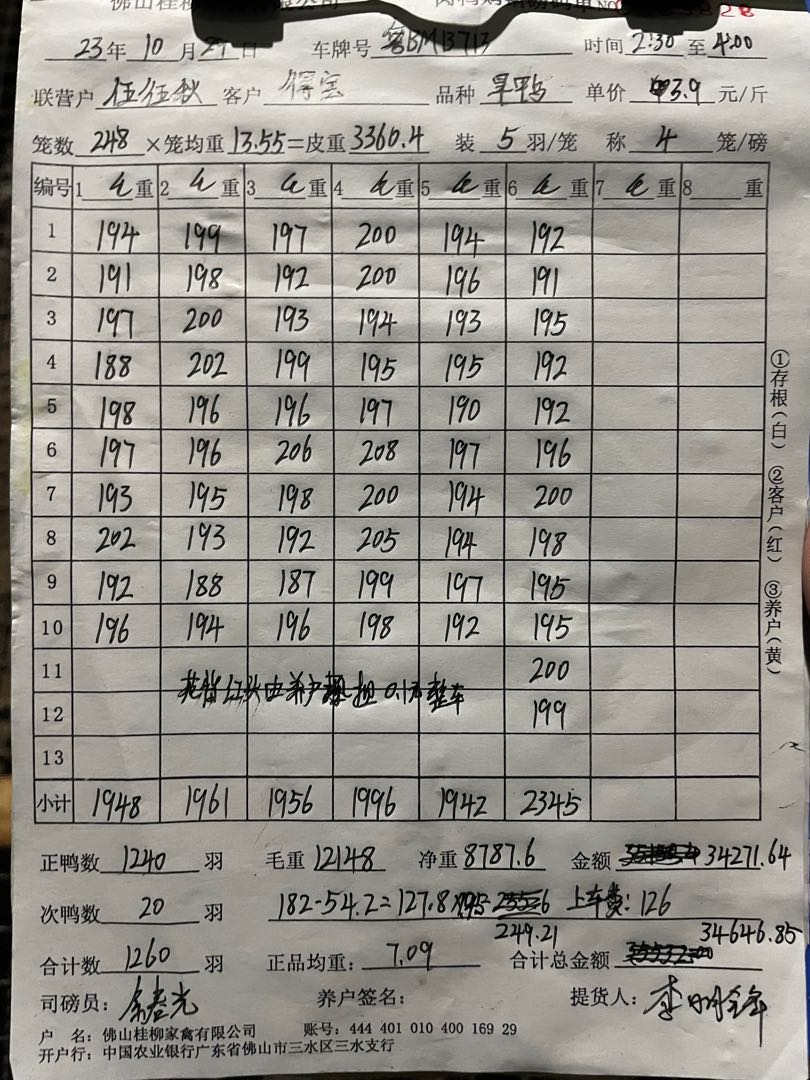 佛山桂柳 有限公司 肉鸭购销磅码单 NO 28
23年 10月29日 车牌号 粤BM13713 时间 2:30 至 4:00
联营户 伍伍秋 客户 得宝 品种 旱鸭 单价 3.9 元/斤
笼数 248 ×笼均重 13.55=皮重 3360.4 装 5 羽/笼 称 4 笼/磅
编号 1 毛重 2 毛重 3 毛重 4 毛重 5 毛重 6 毛重 7 毛重 8 重
1 194 199 197 200 194 192
2 191 198 192 200 196 191
3 197 200 193 194 193 195
4 188 202 199 195 195 192
5 198 196 196 197 190 192
6 197 196 206 208 197 196
7 193 195 198 200 194 200
8 202 193 192 205 194 198
9 192 188 187 199 197 195
10 196 194 196 198 192 195
11 200
12 199
13
小计 1948 1961 1956 1996 1942 2345
正鸭数 1240 羽 毛重 12148 净重 8787.6 金额 34271.64
次鸭数 20 羽 182-54.2=127.8 上车费:126
249.21
合计数 1260 羽 正品均重: 7.09 合计总金额 34646.85
司磅员: 养户签名: 提货人:
户 名: 佛山桂柳家禽有限公司 账号: 444 401 010 400 169 29
开户行: 中国农业银行广东省佛山市三水区三水支行
①存根(白) ②客户(红) ③养户(黄)